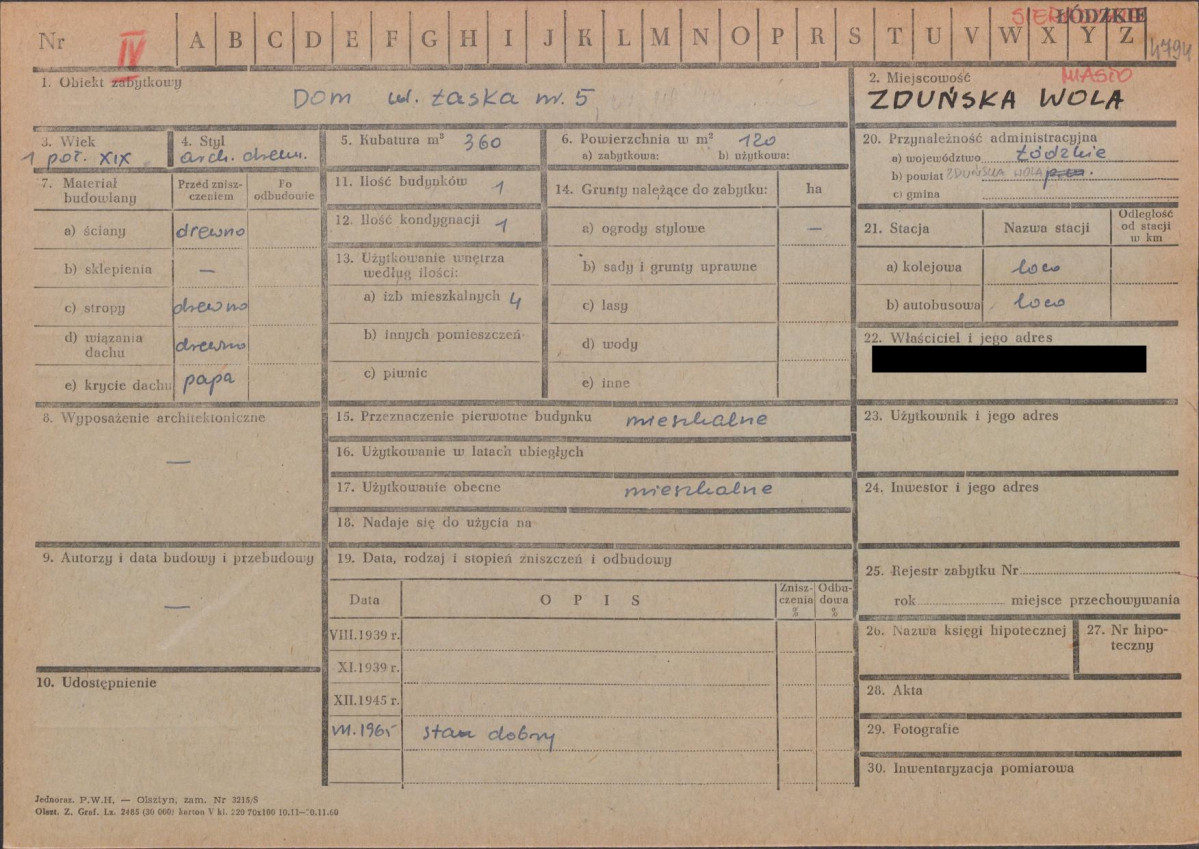 Nr IV A B C D E F G H I J K L M N O P R S T U V W X Y Z ŁÓDZKIE
4794
1. Obiekt zabytkowy
Dom ul. Łaska nr. 5
2. Miejscowość MIASTO
ZDUŃSKA WOLA
3. Wiek
1 poł. XIX
4. Styl
arch. drewn.
5. Kubatura m³ 360
6. Powierzchnia w m² 120
a) zabytkowa: b) użytkowa:
20. Przynależność administracyjna
a) województwo Łódzkie
b) powiat ZDUŃSKA WOLA
c) gmina
7. Materiał budowlany
Przed zniszczeniem
Po odbudowie
a) ściany drewno
b) sklepienia —
c) stropy drewno
d) wiązania dachu drewno
e) krycie dachu papa
11. Ilość budynków 1
12. Ilość kondygnacji 1
13. Użytkowanie wnętrza
według ilości:
a) izb mieszkalnych 4
b) innych pomieszczeń
c) piwnic
14. Grunty należące do zabytku: ha
a) ogrody stylowe —
b) sady i grunty uprawne
c) lasy
d) wody
e) inne
21. Stacja Nazwa stacji Odległość od stacji w km
a) kolejowa loco
b) autobusowa loco
22. Właściciel i jego adres
8. Wyposażenie architektoniczne
—
15. Przeznaczenie pierwotne budynku mieszkalne
16. Użytkowanie w latach ubiegłych
17. Użytkowanie obecne mieszkalne
18. Nadaje się do użycia na
23. Użytkownik i jego adres
24. Inwestor i jego adres
9. Autorzy i data budowy i przebudowy
—
19. Data, rodzaj i stopień zniszczeń i odbudowy
Data OPIS Zniszczenia % Odbudowa %
VIII.1939 r.
XI.1939 r.
XII.1945 r.
stan dobry
25. Rejestr zabytku Nr
rok miejsce przechowywania
26. Nazwa księgi hipotecznej
27. Nr hipoteczny
10. Udostępnienie
28. Akta
29. Fotografie
30. Inwentaryzacja pomiarowa
Jednoraz. P.W.H. — Olsztyn, zam. Nr 3215/S
Olszt. Z. Graf. Lz. 2485 (30 000) karton V kl. 220 70x100